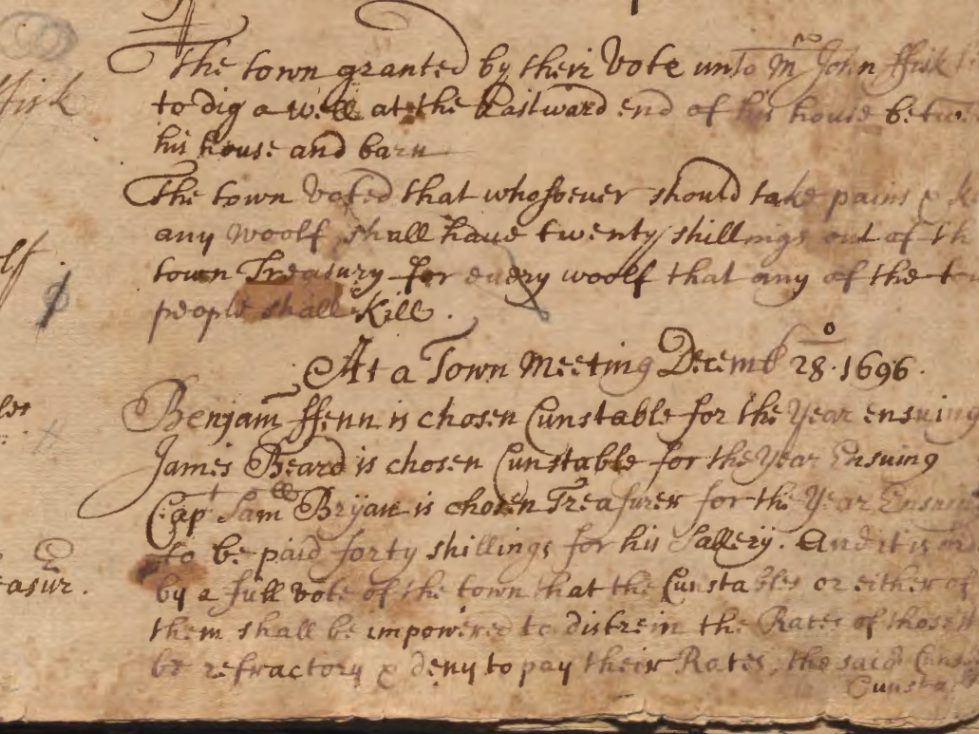 The town granted by their Vote unto Mr John ffisk
ffisk
to dig a well at the Eastward end of his house betwe
his house and barn
The town Voted that whosoever should take pains &
any woolf shall have twenty shillings out of th
lf.
town Treasury for every woolf that any of the
people shall Kill.
At a Town Meeting Decemb 28o. 1696.
Benjam ffenn is chosen Cunstable for the Year ensuing
James Beard is chosen Cunstable for the Year Ensuing
Capt Samll Bryan is chosen Treasurer for the Year Ensuin
to be paid forty shillings for his Sallery. And it is or
easur.
by a full vote of the town that the Cunstables or either of
them shall be impowered to distrein the Rates of those
be refractory & deny to pay their Rates, the said Cuns
Cunsta